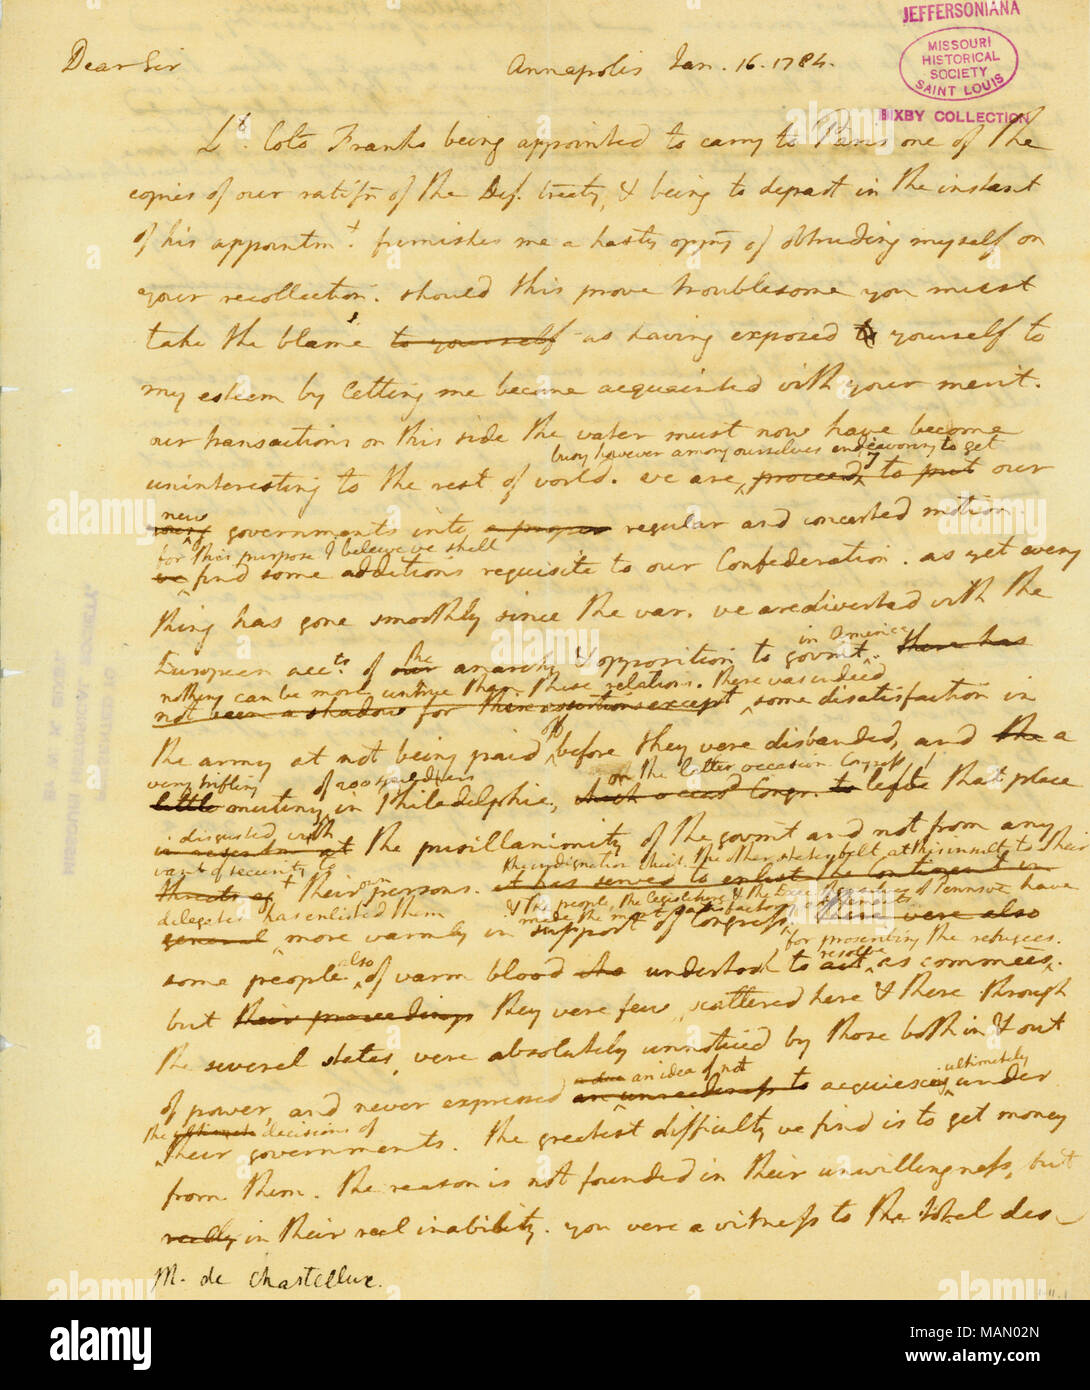 JEFFERSONIANA
MISSOURI
HISTORICAL
SOCIETY
SAINT LOUIS
BIXBY COLLECTION
Dear Sir Annapolis Jan. 16. 1784.
Lt. Colo Franks being appointed to carry to Paris one of the
copies of our ratifn of the Def. treaty, & being to depart in the instant
of his appointmt. furnishes me a hasty oppty of obtruding myself on
your recollection. should this prove troublesome you must
take the blame to yourself as having exposed yourself to
my esteem by letting me become acquainted with your merit.
our transactions on this side the water must now have become
busy however among ourselves endeavoring to get
uninteresting to the rest of world. we are proceedg to put our
new
young governments into a proper regular and concerted motion.
for this purpose I beleive we shall
we find some additions requisite to our Confederation. as yet every
thing has gone smoothly since the war. we are diverted with the
in America
European accts. of our the anarchy & opposition to govmt. there has
nothing can be more untrue than these relations. there was indeed
not been a shadow for these assertions except some disatisfaction in
the army at not being paid off before they were disbanded, and the a
very trifling of 200 souldiers on the latter occasion Congress
little mutiny in Philadelphia, which occasd Congr. to left that place
disgusted with
the pusillanimity of the govmt and not from any
want of security to the indignation which the other states felt at this insult to their
threats agt their own persons. it has served to enlist the Continent in
delegates has enlisted them & the people, the legislature & the Exec. of Pennsva have
made the most satisfactory
general more warmly in support of Congress. there were also
for proscribing the refugees.
also resolve
some people of warm blood who undertook to act as commees.
but their proceedings they were few, scattered here & there through
the several states, were absolutely unnoticed by those both in & out
an idea of not ultimately
of power, and never expressed an unreadiness to acquiescg under
the ultimate decisions of
their governments. the greatest difficulty we find is to get money
from them. the reason is not founded in their unwillingness, but
really in their real inability. you were a witness to the total des
M. de Chastellux.
alamy
alamy stock photo
Image ID: MAN02N
www.alamy.com